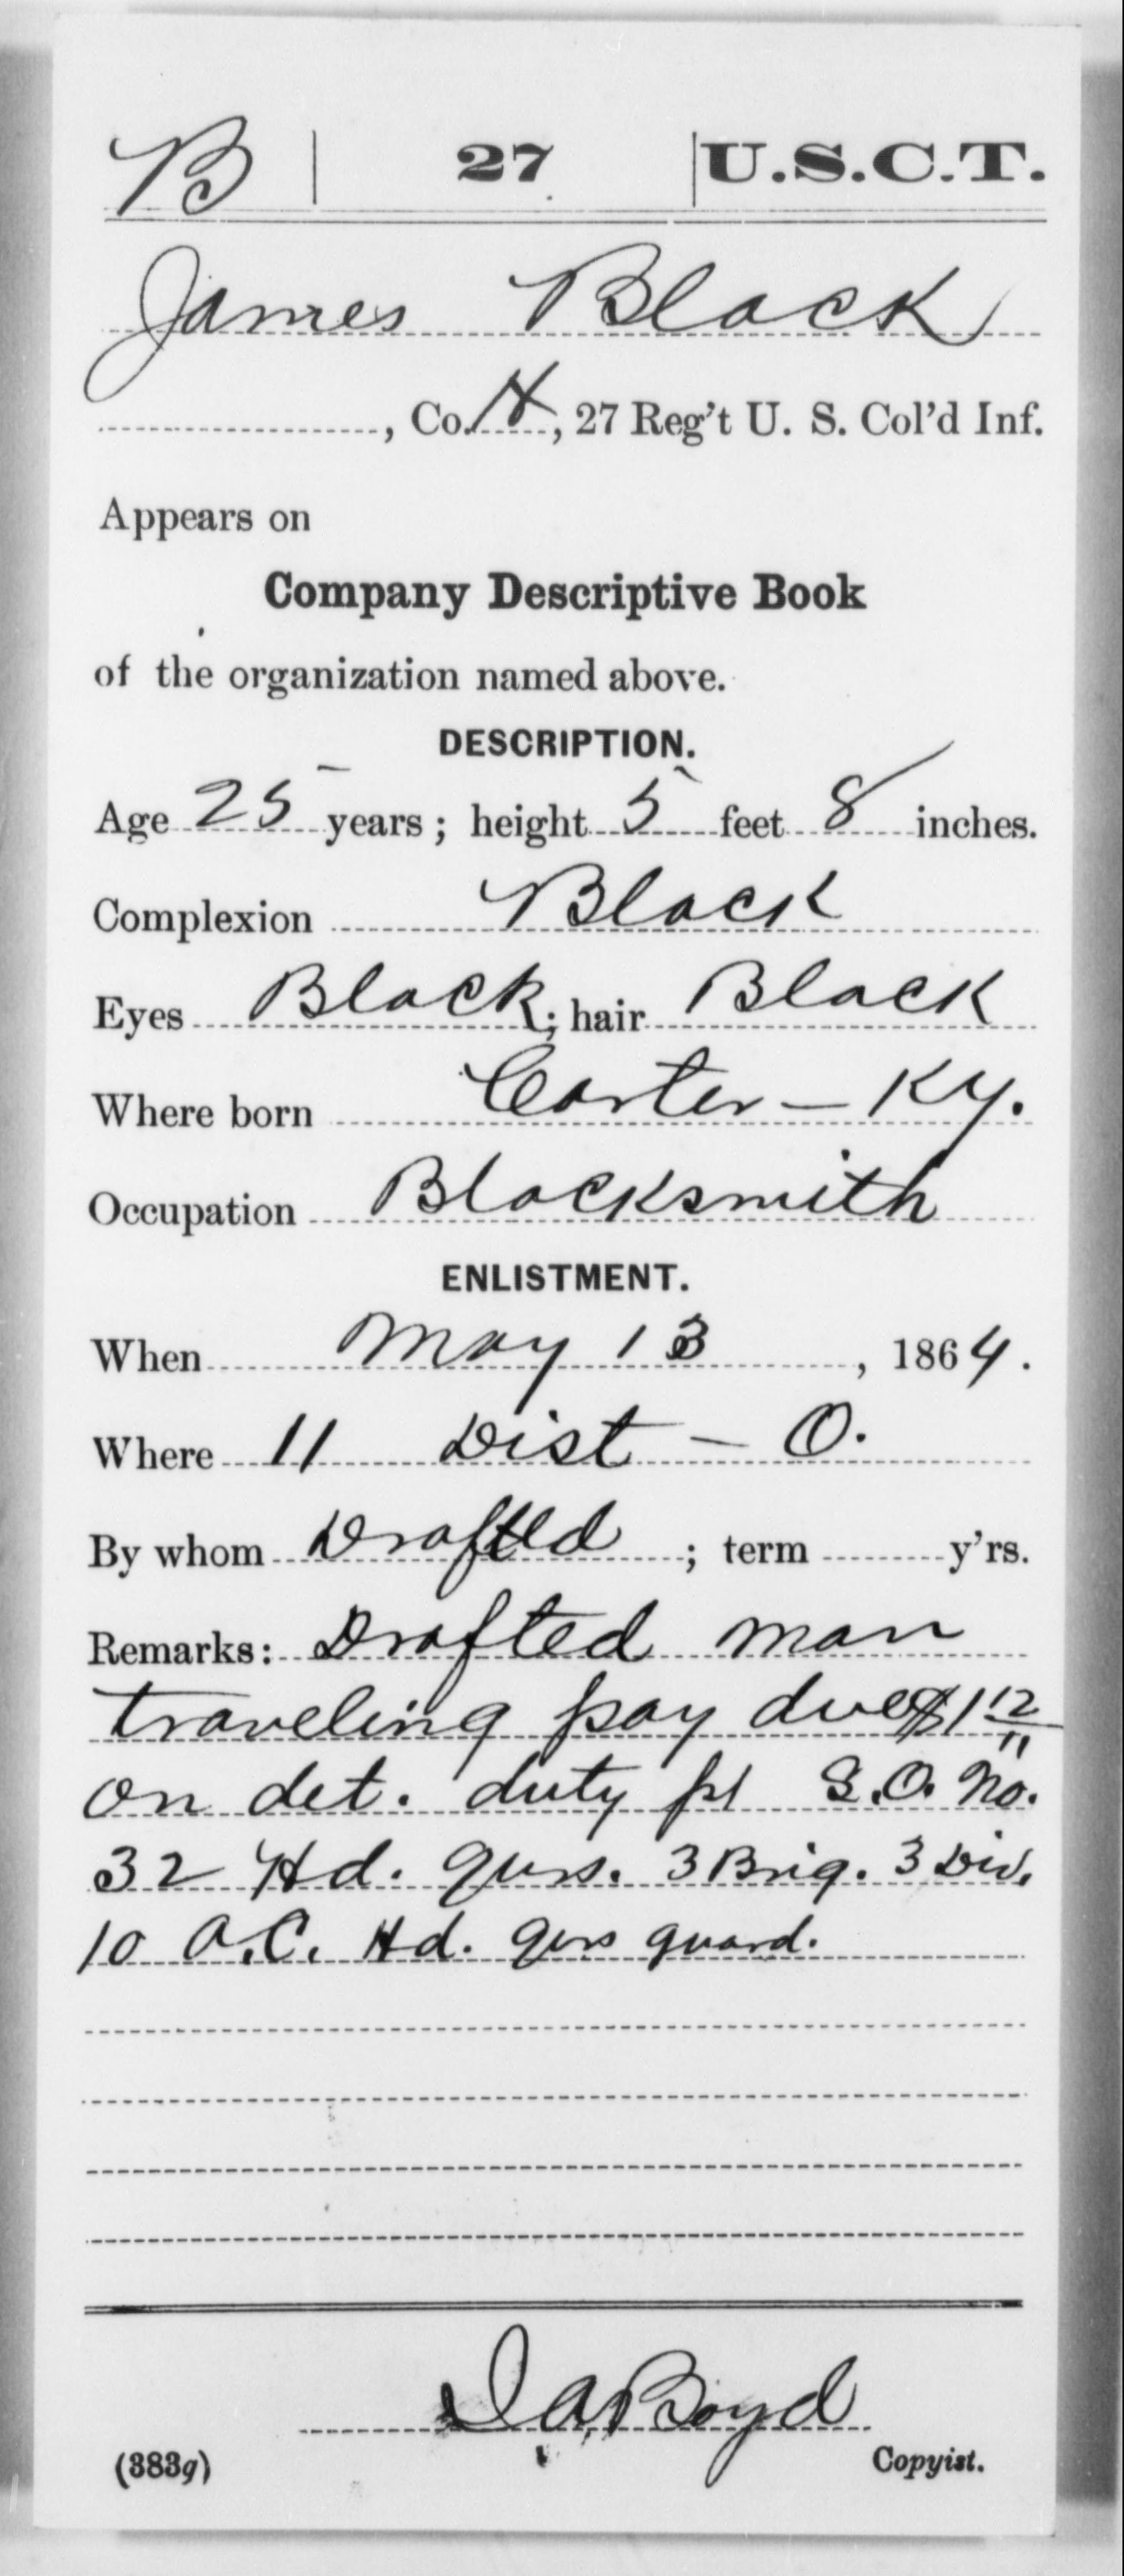 B | 27 | U.S.C.T.
James Black
, Co. H, 27 Reg't U. S. Col'd Inf.
Appears on
Company Descriptive Book
of the organization named above.
DESCRIPTION.
Age 25 years; height 5 feet 8 inches.
Complexion Black
Eyes Black; hair Black
Where born Carter - Ky.
Occupation Blacksmith
ENLISTMENT.
When May 13, 1864.
Where 11 Dist - O.
By whom Drafted; term y'rs.
Remarks: Drafted man
traveling pay due $1 12
on det. duty S.O. No.
32 Hd. qurs. 3 Brig. 3 Div.
10 A.C. Hd. qrs guard.
Boyd
(383g) Copyist.